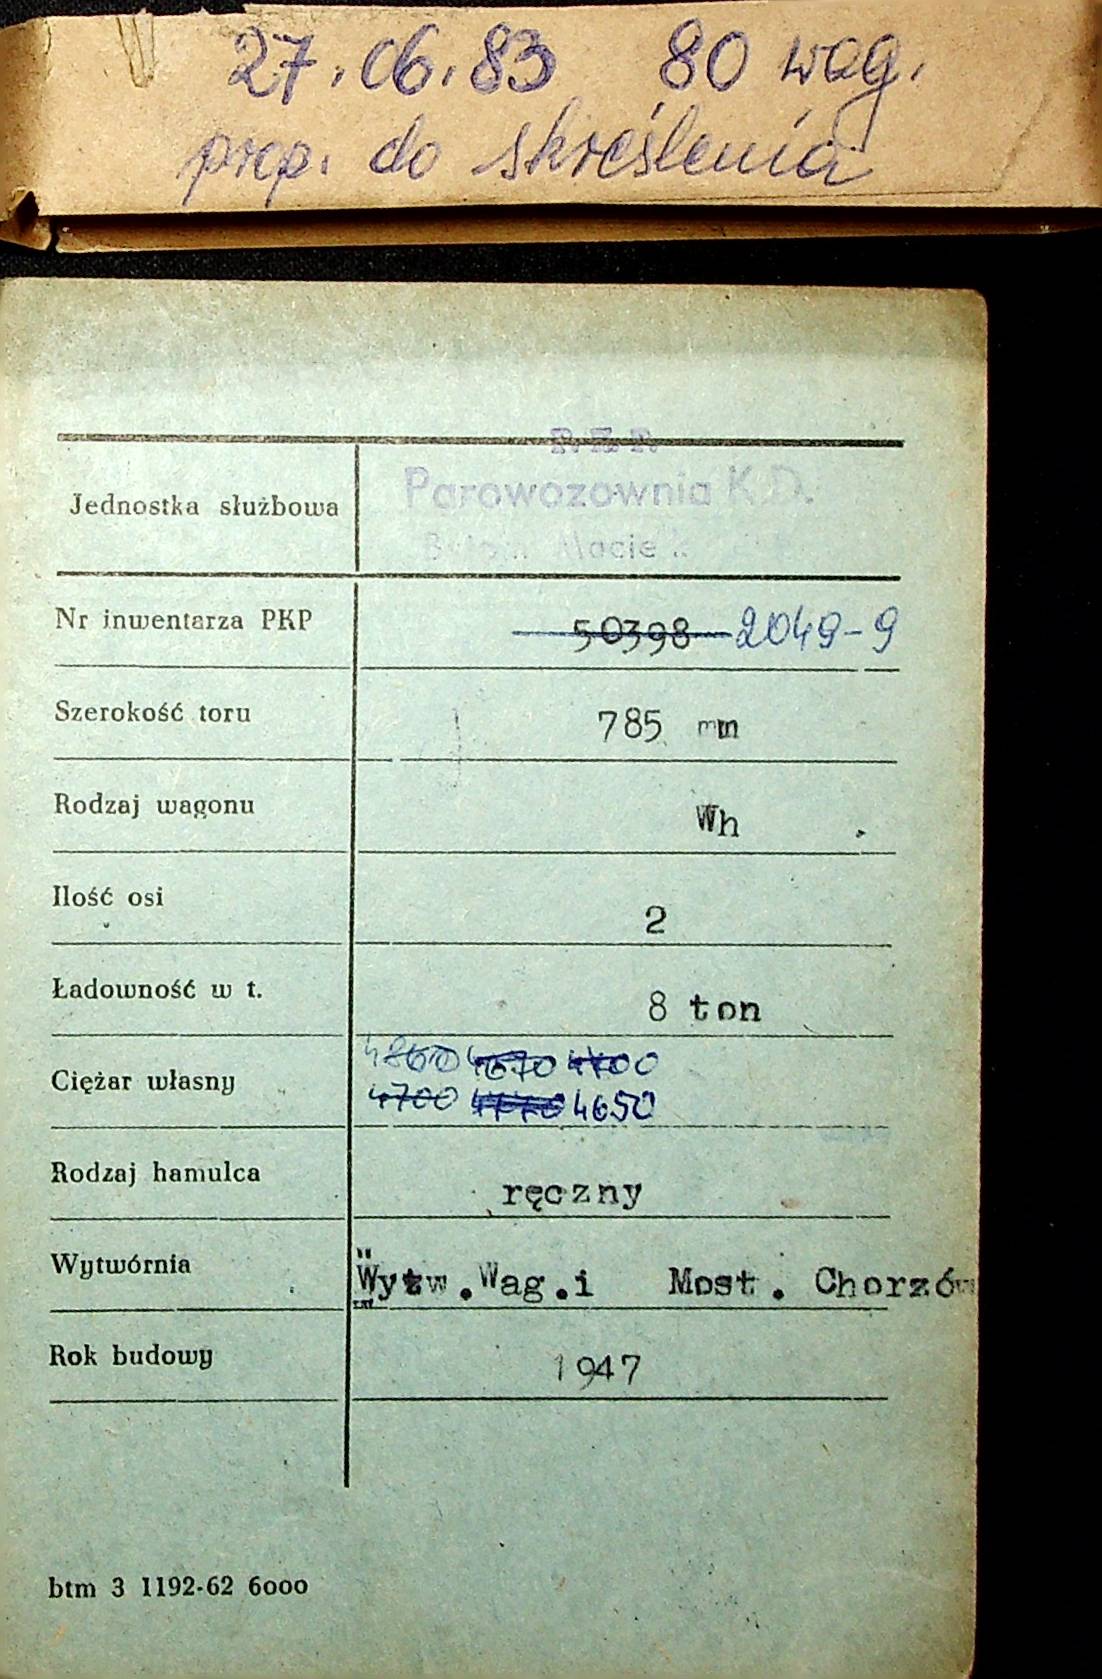 27.06.83 80 wag.
prop. do skreślenia
P.K.P.
Parowozownia K.D.
Jednostka służbowa
Nr inwentarza PKP 50398 2049-9
Szerokość toru 785 mm
Rodzaj wagonu Wh
Ilość osi 2
Ładowność w t. 8 ton
4860 4670 4700
Ciężar własny
4700 4650
Rodzaj hamulca ręczny
Wytwórnia Wytw. Wag. i Most. Chorzów
Rok budowy 1947
btm 3 1192-62 6000